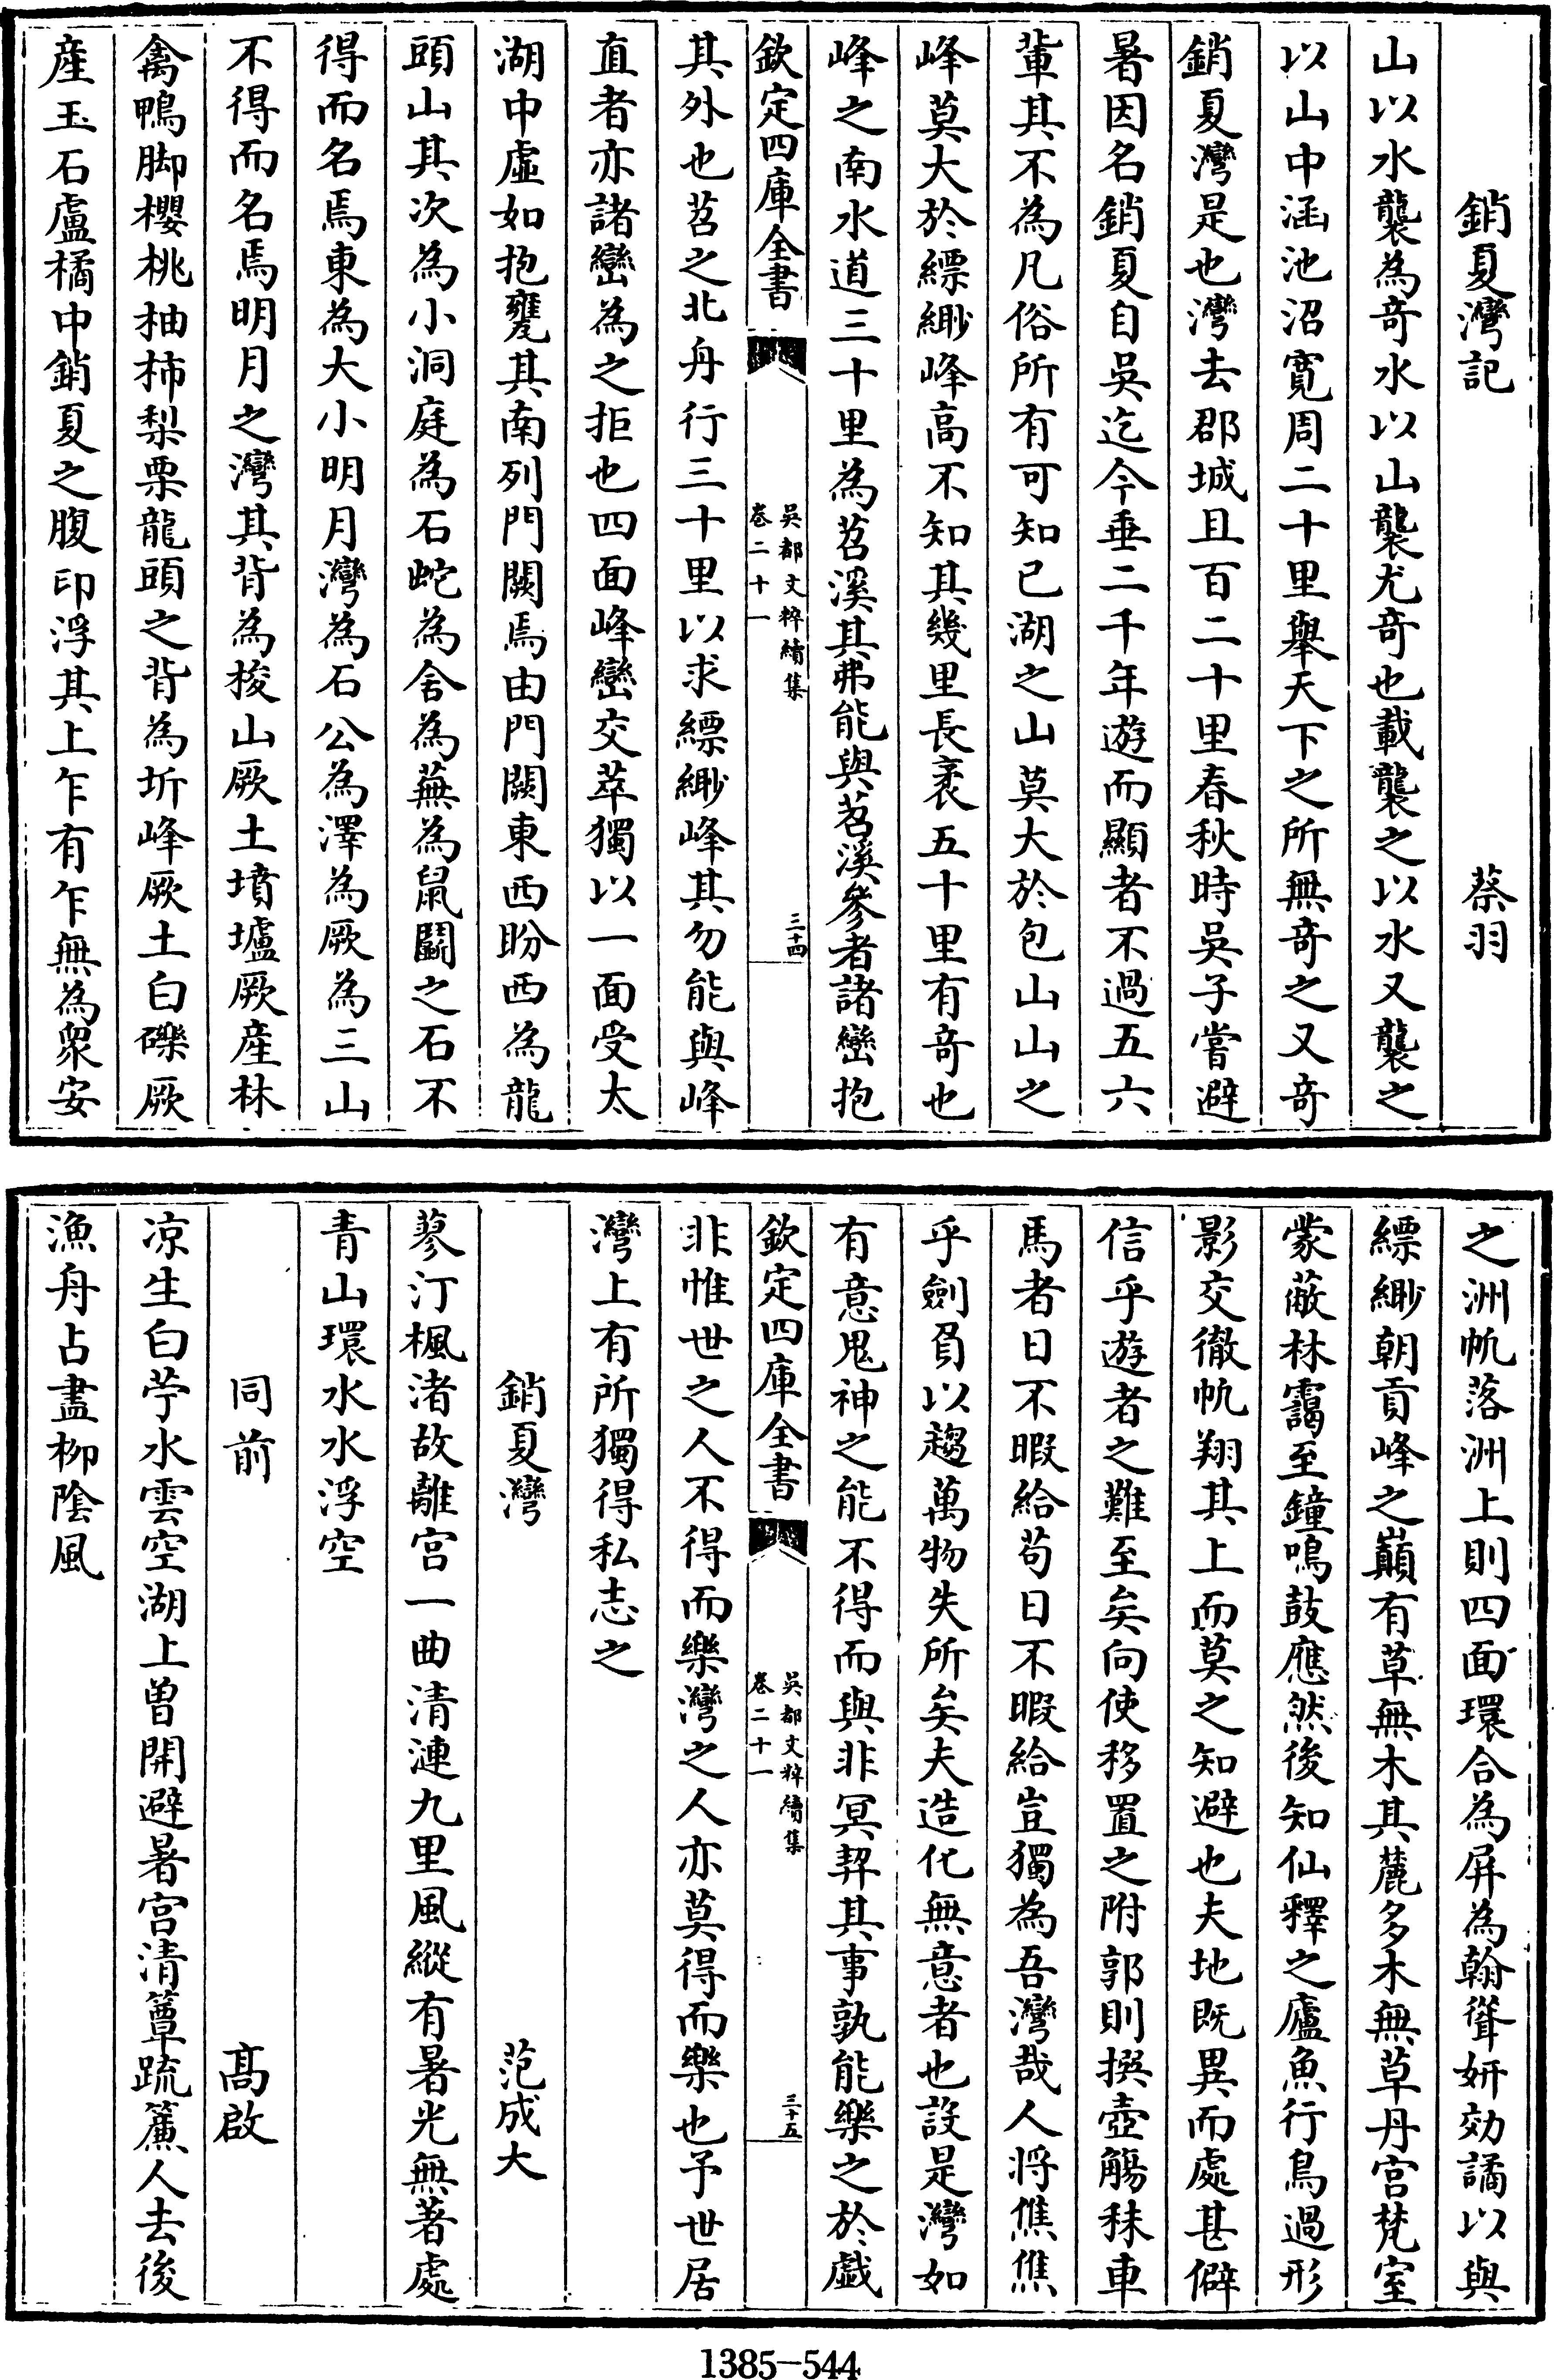 銷夏灣記　蔡羽
山以水襲為奇水以山襲尤奇也載襲之以水又襲之
以山中涵池沼寛周二十里舉天下之所無奇之又奇
銷夏灣是也灣去郡城且百二十里春秋時吳子嘗避
暑因名銷夏自吳迄今垂二千年遊而顯者不過五六
輩其不為凡俗所有可知已湖之山莫大於包山山之
峰莫大於縹緲峰高不知其幾里長袤五十里有奇也
峰之南水道三十里為苕溪其弗能與苕溪參者諸巒抱
欽定四庫全書
吳都文粹續集
卷二十一
三十四
其外也苕之北舟行三十里以求縹緲峰其勿能與峰
直者亦諸巒為之拒也四面峰巒交萃獨以一面受太
湖中虛如抱甕其南列門闕焉由門闕東西盼西為龍
頭山其次為小洞庭為石蛇為舍為蕪為鼠鬭之石不
得而名焉東為大小明月灣為石公為澤為厥為三山
不得而名焉明月之灣其背為梭山厥土墳壚厥產林
禽鴨脚櫻桃柚柿梨栗龍頭之背為圻峰厥土白礫厥
產玉石盧橘中銷夏之腹印浮其上乍有乍無為衆安
之洲帆落洲上則四面環合為屏為翰聳妍効譎以與
縹緲朝貢峰之巔有草無木其麓多木無草丹宮梵室
蒙蔽林靄至鐘鳴鼓應然後知仙釋之廬魚行鳥過形
影交徹帆翔其上而莫之知避也夫地既異而處甚僻
信乎遊者之難至矣向使移置之附郭則撰壺觴秣車
馬者日不暇給茍日不暇給豈獨為吾灣哉人將僬僬
乎劍負以趨萬物失所矣夫造化無意者也設是灣如
有意鬼神之能不得而與非冥契其事孰能樂之於戯
欽定四庫全書
吳都文粹續集
卷二十一
三十五
非惟世之人不得而樂灣之人亦莫得而樂也予世居
灣上有所獨得私志之
銷夏灣　范成大
蓼汀楓渚故離宮一曲清漣九里風縱有暑光無著處
青山環水水浮空
同前　高啟
凉生白苧水雲空湖上曽開避暑宮清簟疏簾人去後
漁舟占盡柳陰風
1385-544